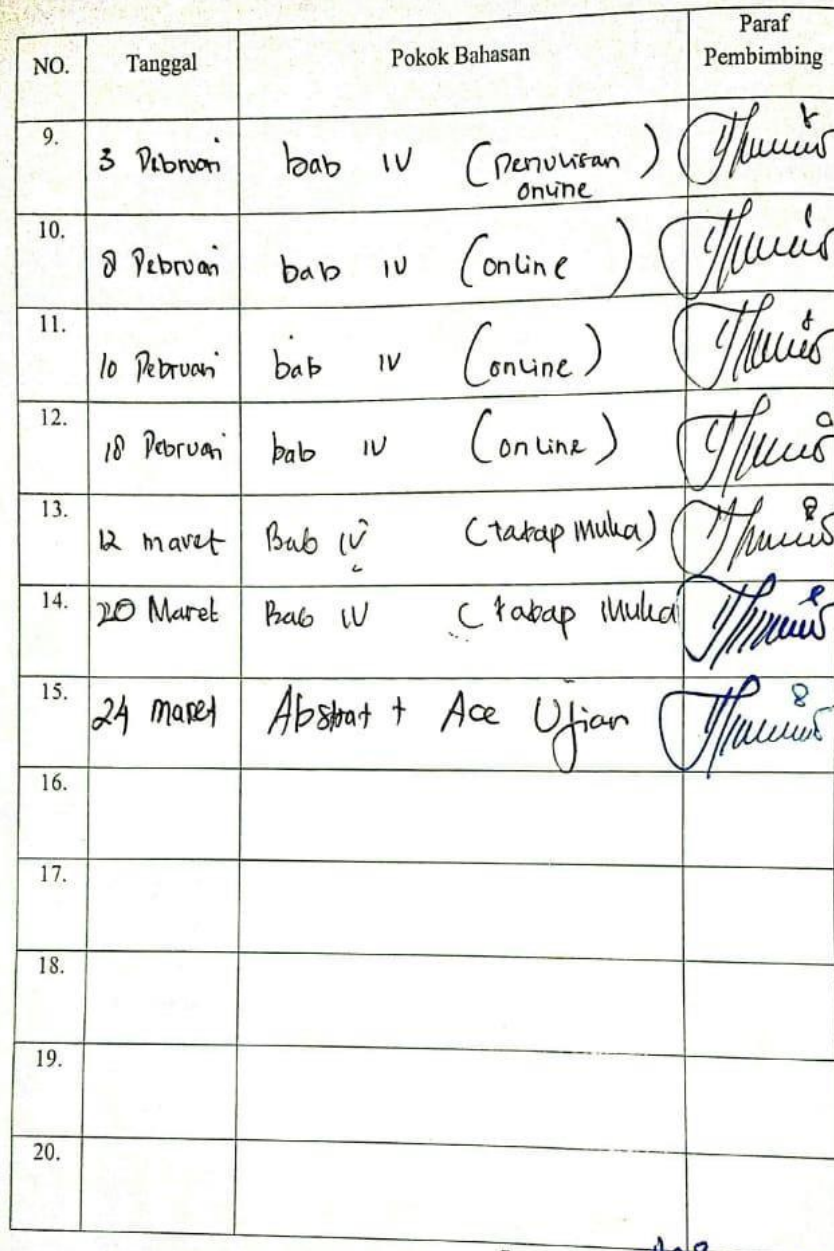 NO. Tanggal Pokok Bahasan Paraf Pembimbing
9. 3 Pebruari bab IV (penulisan online)
10. 8 Pebruari bab IV (online)
11. 10 Pebruari bab IV (online)
12. 18 Pebruari bab IV (online)
13. 12 maret Bab IV (tatap muka)
14. 20 Maret Bab IV (tatap muka
15. 24 maret Abstrat + Acc Ujian
16.
17.
18.
19.
20.